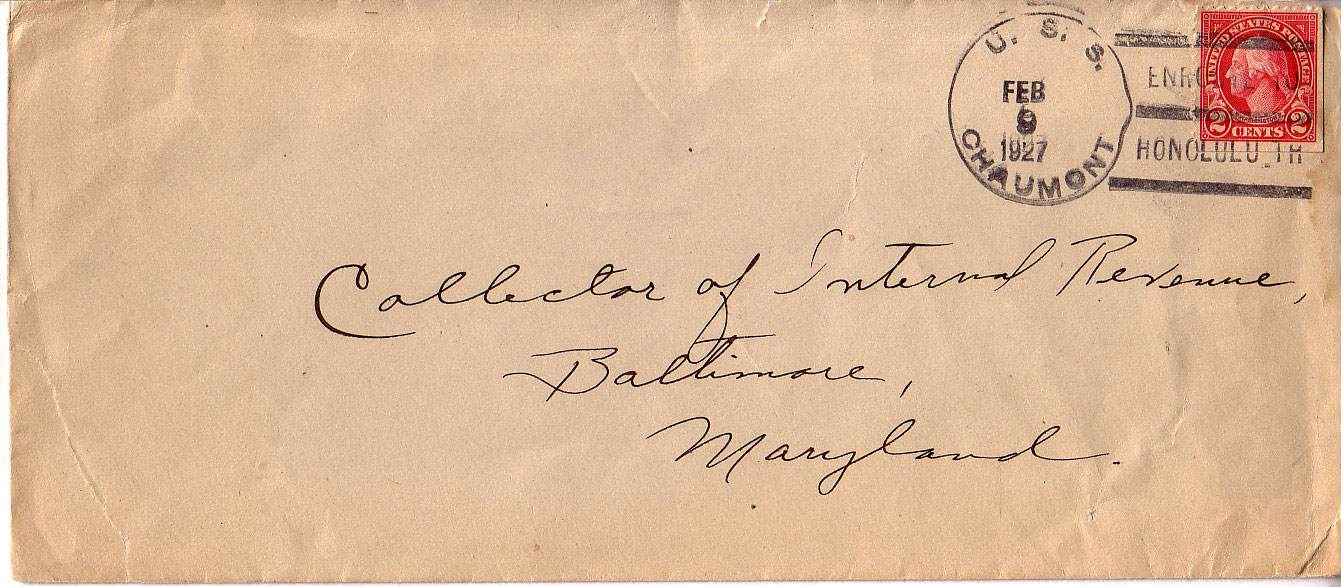 U. S. S.
FEB
9
1927
CHAUMONT
ENROUTE TO
HONOLULU TH
UNITED STATES POSTAGE
2 CENTS 2
Collector of Internal Revenue,
Baltimore,
Maryland.